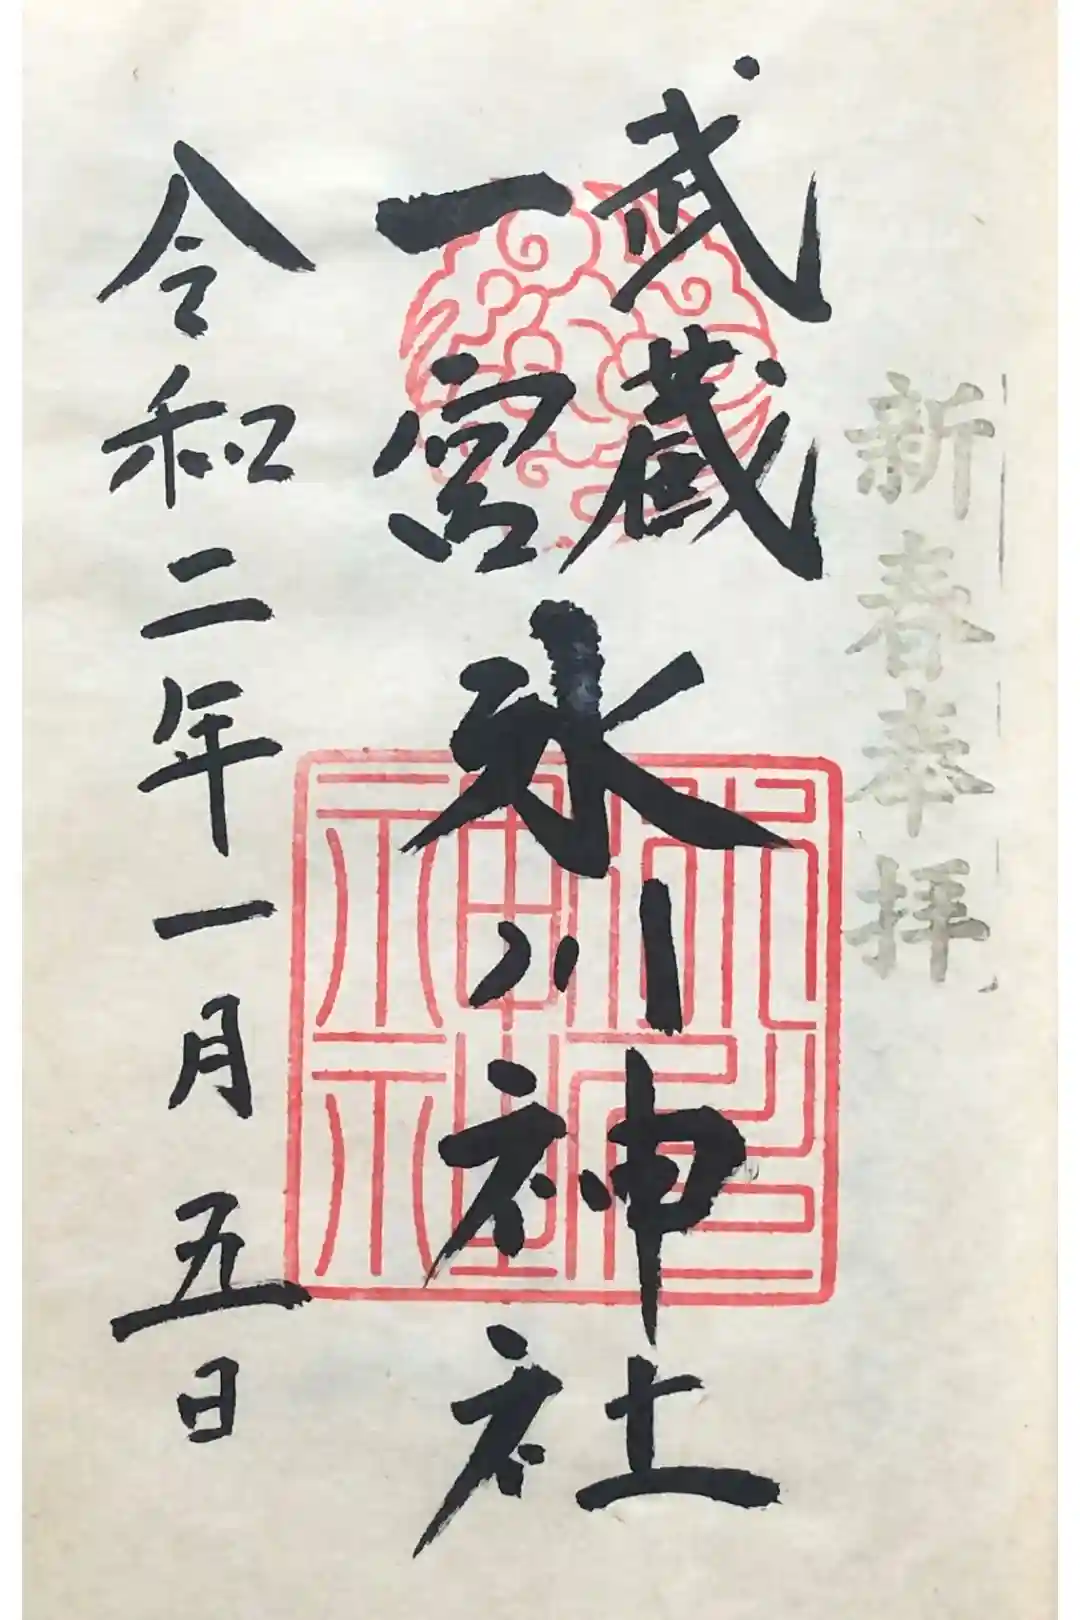 新春奉拝
武蔵
一宮
氷川神社
氷川神社
令和二年一月五日